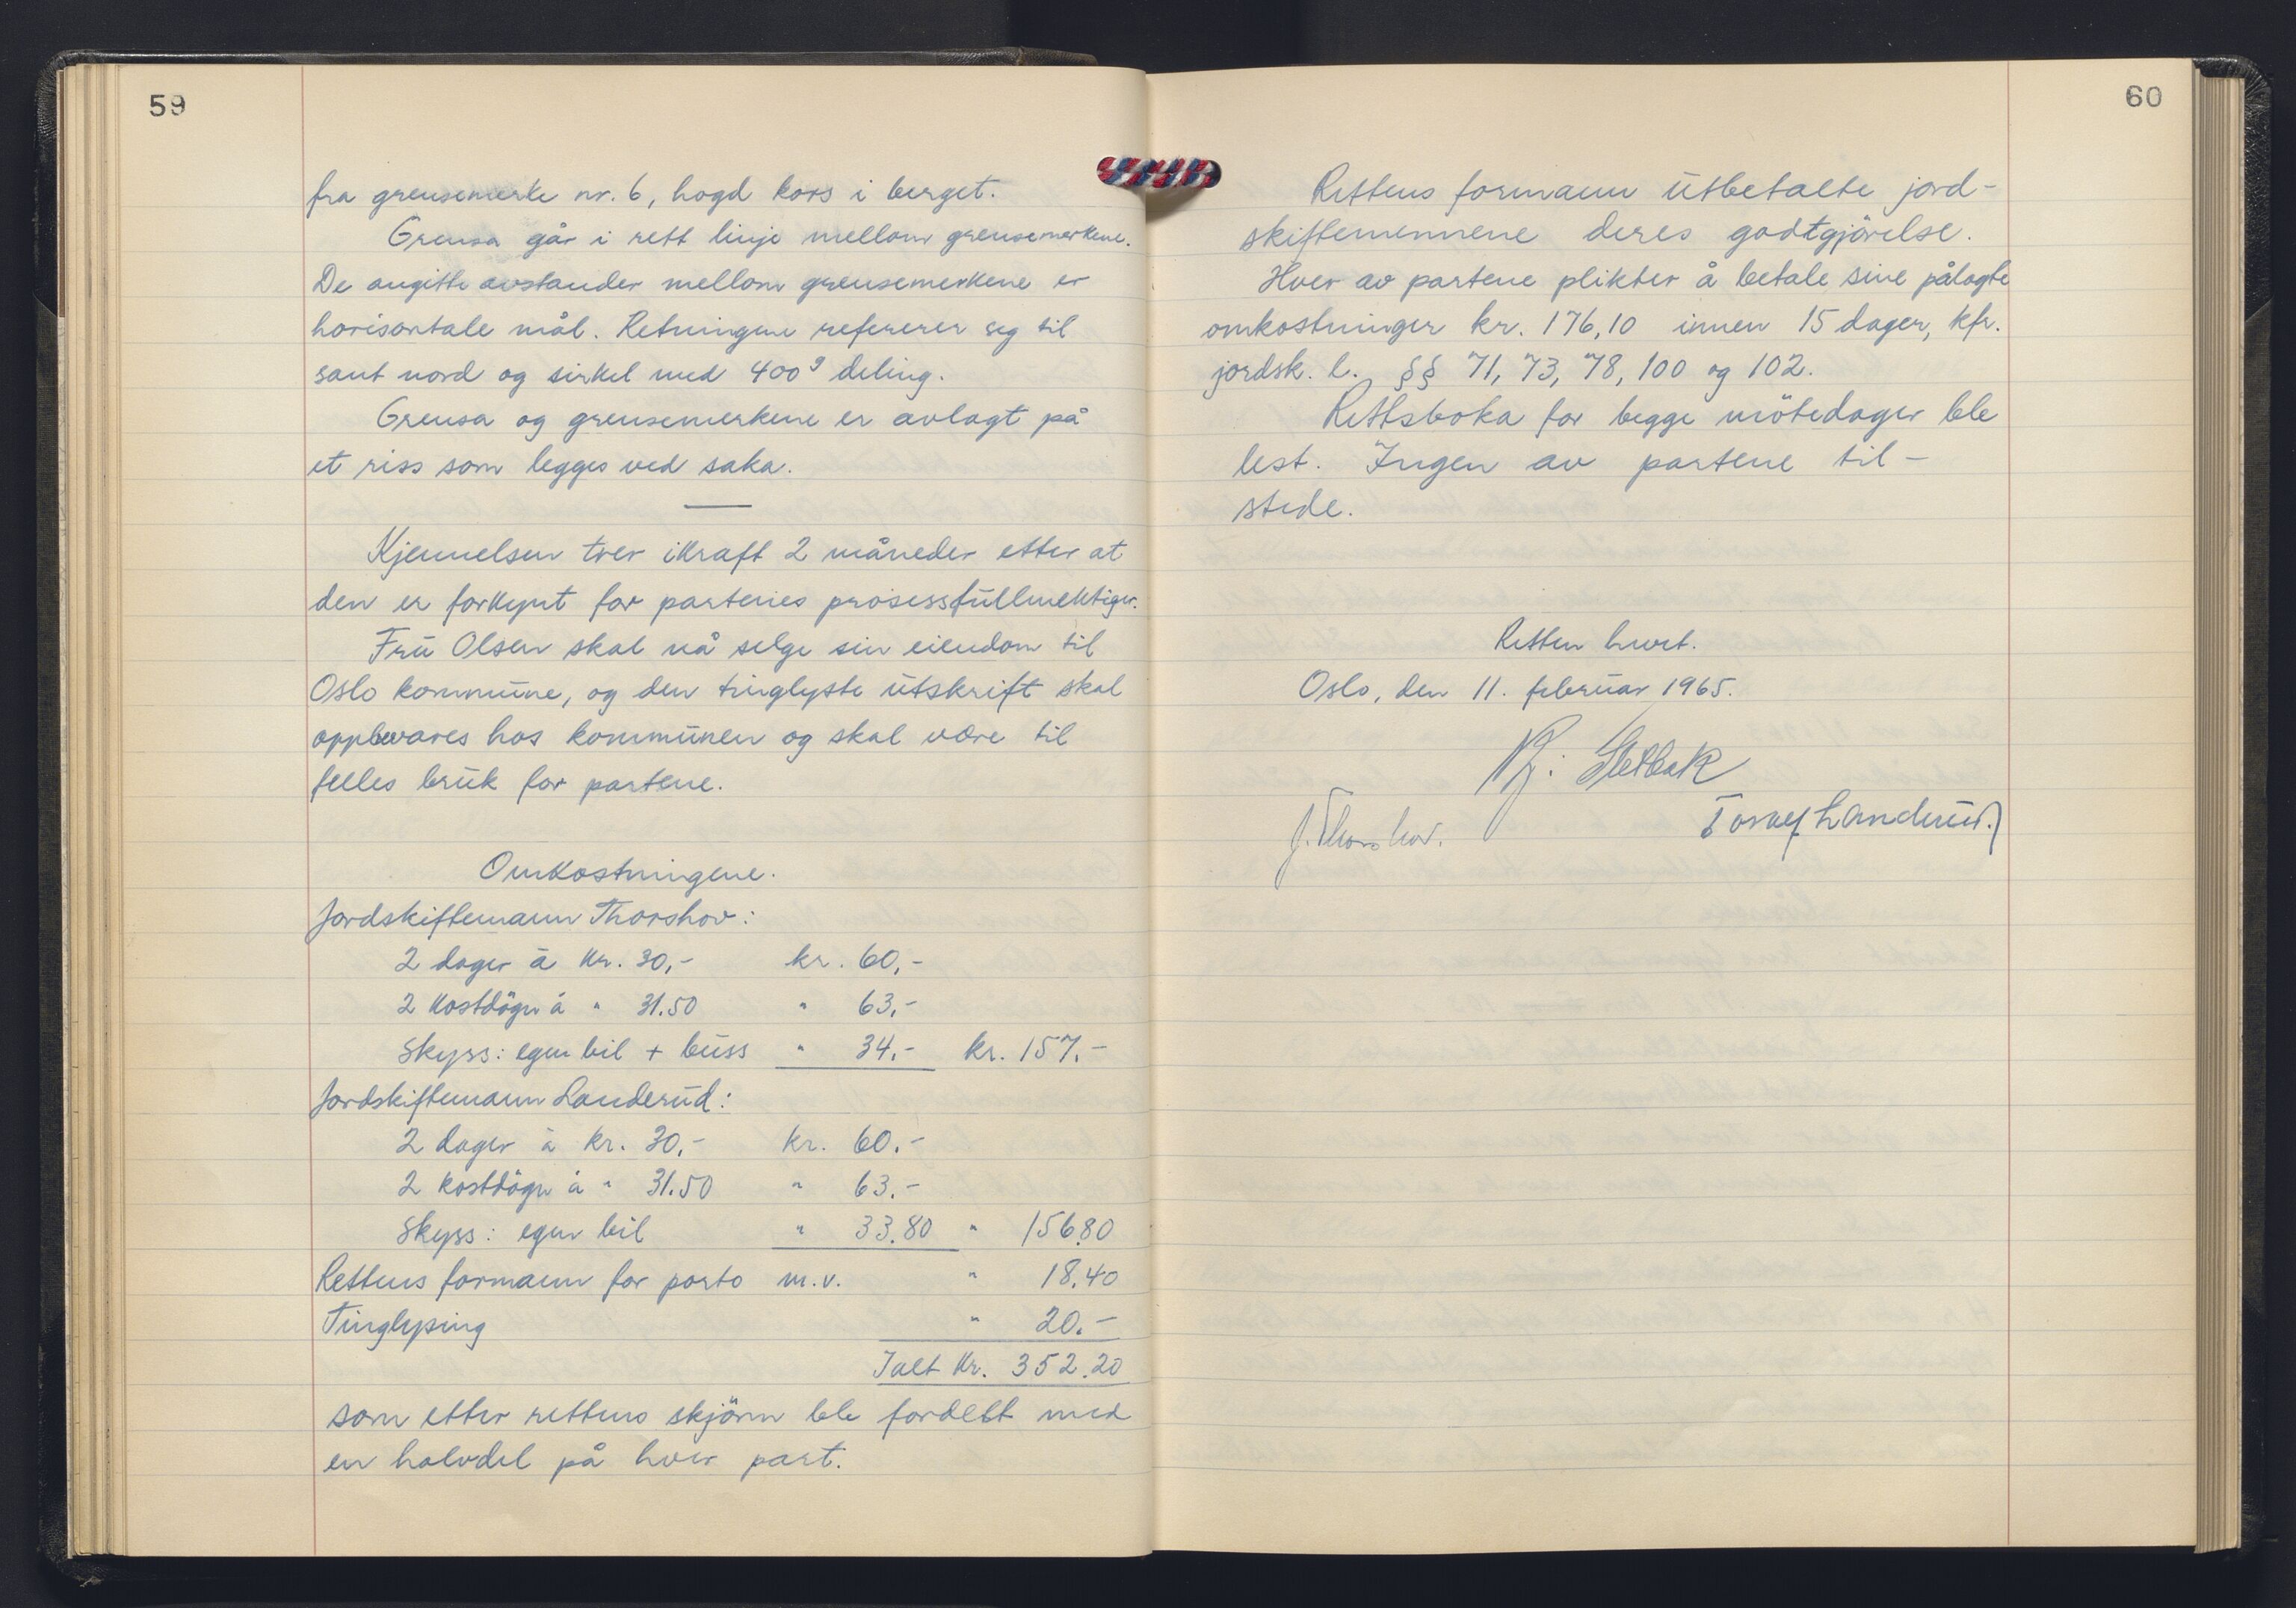 59
fra grensemerke nr. 6, hogd kors i berget.
Grensa går i rett linje mellom grensemerkene.
De angitte avstander mellom grensemerkene er
horisontale mål. Retningene refererer seg til
sant nord og sirkel med 400g deling.
Grensa og grensemerkene er avlagt på
et riss som legges ved saka.
Kjennelsen trer ikraft 2 måneder etter at
den er forkynt for partenes prosessfullmektiger.
Fru Olsen skal nå selge sin eiendom til
Oslo kommune, og den tinglyste utskrift skal
oppbevares hos kommunen og skal være til
felles bruk for partene.
Omkostningene.
Jordskiftemann Thorshov:
2 dager à kr. 30,- kr. 60,-
2 kostdögn à " 31.50 " 63,-
Skyss: egen bil + buss " 34.- kr. 157.-
Jordskiftemann Landerud:
2 dager à kr. 30,- kr. 60.-
2 kostdögn à " 31.50 " 63.-
Skyss: egen bil " 33.80 " 156.80
Rettens formann for porto m.v. " 18.40
Tinglysing " 20.-
Ialt kr. 352.20
som etter rettens skjönn ble fordelt med
en halvdel på hver part.
60
Rettens formann utbetalte jord-
skiftemennene deres godtgjörelse.
Hver av partene plikter å betale sine pålagte
omkostninger kr. 176,10 innen 15 dager, kfr.
jordsk. l. §§ 71, 73, 78, 100 og 102.
Rettsboka for begge mötedager ble
lest. Ingen av partene til-
stede.
Retten hevet.
Oslo, den 11. februar 1965.
J. Thorshov.